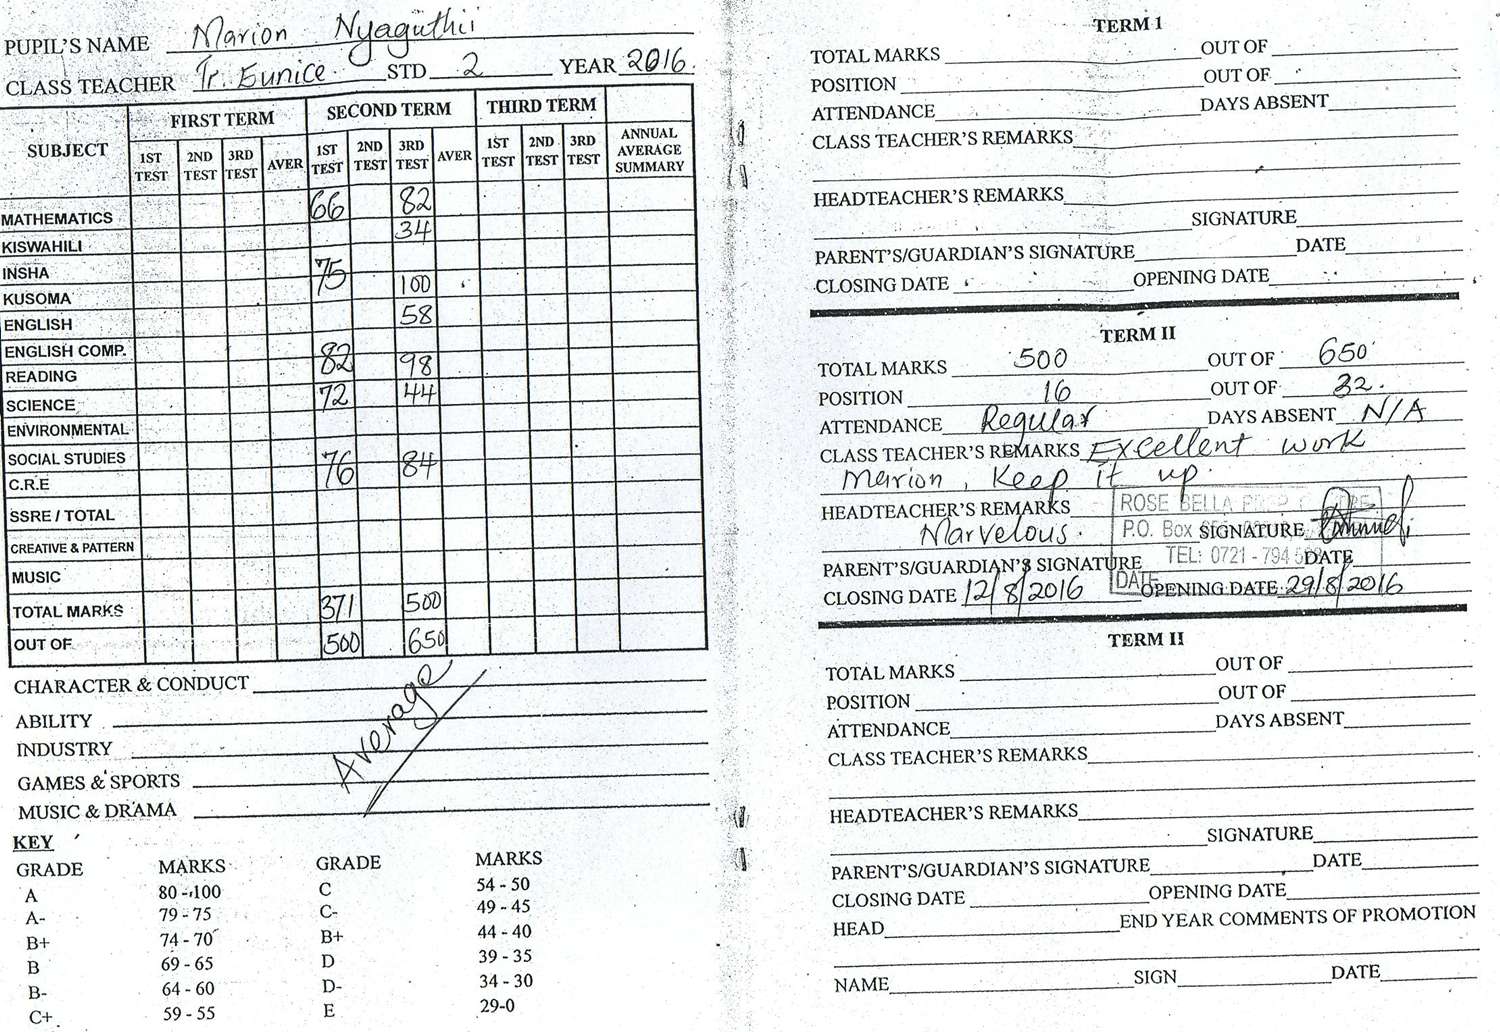 PUPIL'S NAME Marion Nyaguthii
CLASS TEACHER Tr. Eunice STD 2 YEAR 2016.
SUBJECT FIRST TERM SECOND TERM THIRD TERM ANNUAL AVERAGE SUMMARY
1ST TEST 2ND TEST 3RD TEST AVER 1ST TEST 2ND TEST 3RD TEST AVER 1ST TEST 2ND TEST 3RD TEST
MATHEMATICS 66 82
KISWAHILI 34
INSHA 75
KUSOMA 100
ENGLISH 58
ENGLISH COMP. 82
READING 98
SCIENCE 72 44
ENVIRONMENTAL
SOCIAL STUDIES
C.R.E 76 84
SSRE / TOTAL
CREATIVE & PATTERN
MUSIC
TOTAL MARKS 371 500
OUT OF 500 650
CHARACTER & CONDUCT
ABILITY
INDUSTRY
GAMES & SPORTS
MUSIC & DRAMA
Average
KEY
GRADE MARKS GRADE MARKS
A 80 - 100 C 54 - 50
A- 79 - 75 C- 49 - 45
B+ 74 - 70 B+ 44 - 40
B 69 - 65 D 39 - 35
B- 64 - 60 D- 34 - 30
C+ 59 - 55 E 29-0
TERM 1
TOTAL MARKS OUT OF
POSITION OUT OF
ATTENDANCE DAYS ABSENT
CLASS TEACHER'S REMARKS
HEADTEACHER'S REMARKS
SIGNATURE
PARENT'S/GUARDIAN'S SIGNATURE DATE
CLOSING DATE OPENING DATE
TERM II
TOTAL MARKS 500 OUT OF 650
POSITION 16 OUT OF 32.
ATTENDANCE Regular DAYS ABSENT N/A
CLASS TEACHER'S REMARKS Excellent work
Marion, Keep it up.
HEADTEACHER'S REMARKS ROSE BELLA
Marvelous. P.O. Box SIGNATURE
PARENT'S/GUARDIAN'S SIGNATURE TEL: 0721 - 794 DATE
DATE
CLOSING DATE 12/8/2016 OPENING DATE 29/8/2016
TERM II
TOTAL MARKS OUT OF
POSITION OUT OF
ATTENDANCE DAYS ABSENT
CLASS TEACHER'S REMARKS
HEADTEACHER'S REMARKS
SIGNATURE
PARENT'S/GUARDIAN'S SIGNATURE DATE
CLOSING DATE OPENING DATE
HEAD END YEAR COMMENTS OF PROMOTION
NAME SIGN DATE